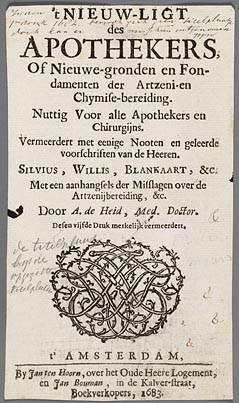 'tNIEUW-LIGT
des
APOTHEKERS,
Of Nieuwe-gronden en Fon-
damenten der Artzeni-en
Chymise-bereiding.
Nuttig Voor alle Apothekers en
Chirurgijns.
Vermeerdert met eenige Nooten en geleerde
voorschriften van de Heeren.
SILVIUS, WILLIS, BLANKAART, &c.
Met een aanhangsels der Misslagen over de
Artzenijbereiding, &c.
Door A. de Heid, Med. Doctor.
Desen vijfde Druk merkelijk vermeerdert.
de titelplaat
t'AMSTERDAM,
By Jan ten Hoorn, over het Oude Heere Logement,
en Jan Bouman, in de Kalver-straat,
Boekverkopers, 1683.